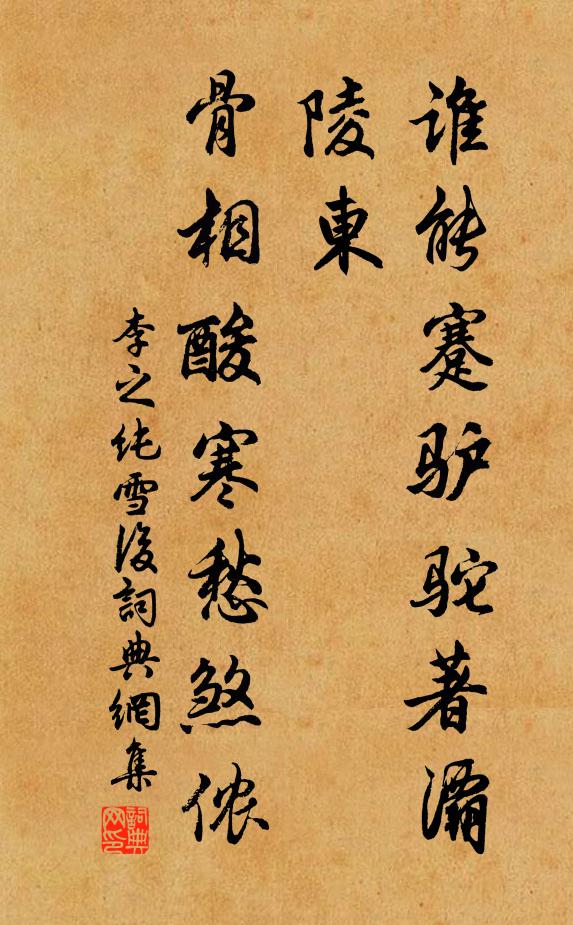 谁能蹇驴驼著灞
陵東
骨相酸寒愁煞侬
李之纯雪後詞典網集
詞典网印